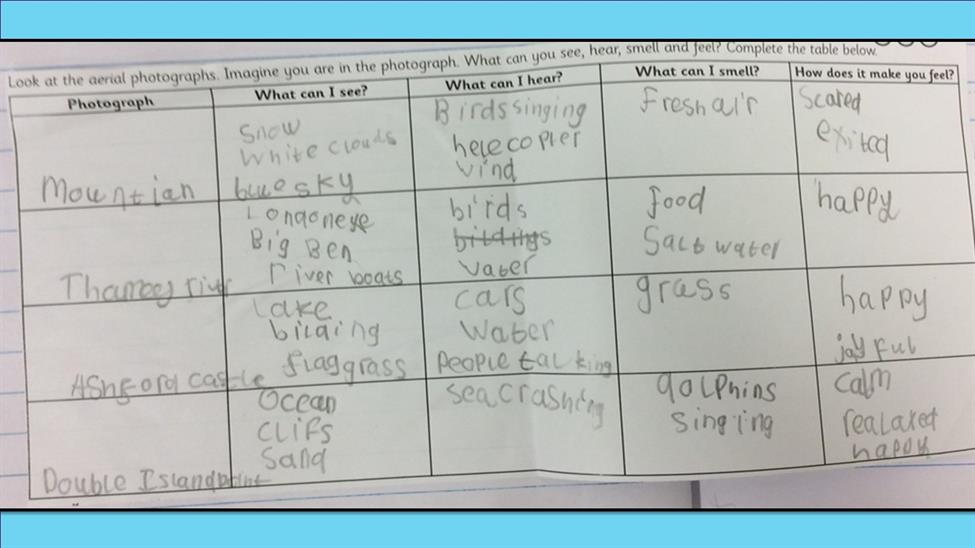 Look at the aerial photographs. Imagine you are in the photograph. What can you see, hear, smell and feel? Complete the table below.
Photograph
What can I see?
What can I hear?
What can I smell?
How does it make you feel?
Mountian
Snow
White clouds
blue sky
Birds singing
helecopter
vind
Fresh air
Scared
exited
river
Big Ben
river boats
birds
vater
food
Salt water
happy
Ashford castle
Lake
bilding
flag grass
cars
water
People talking
grass
happy
joyful
Double Island
Ocean
clifs
Sand
sea crashing
dolphins
singing
calm
realaxed
happy